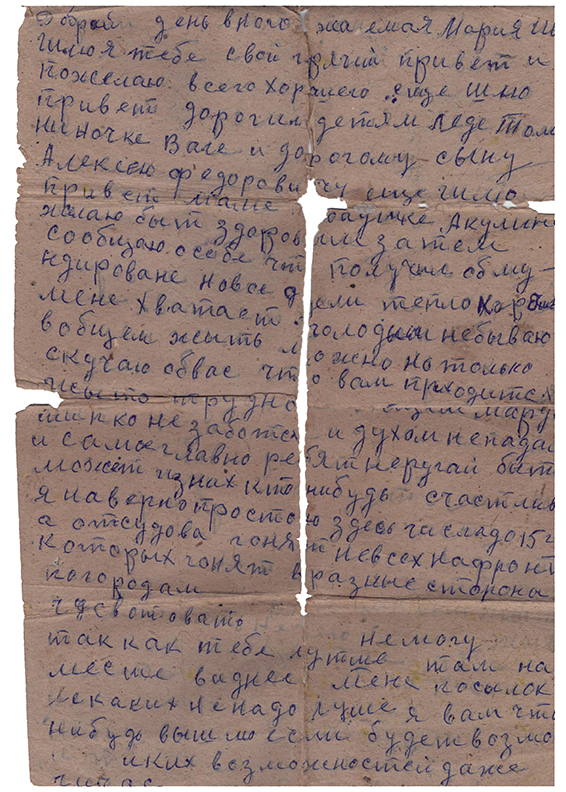 добрый день многоуважаемая Мария Ив
Шлю я тебе свой горячий привет и
пожелаю всего хорошего еще шлю
привет дорогим детям Леде Тома
Ниночке Вале и дорогому сыну
Алексею Федоровичу еще шлю
привет маме бабушке Акулин
желаю быт здоровым затем
сообщаю о себе что получил обму-
ндироване новое одели тепло
мене хватает голодным небываю
вобщем жыть можно но только
скучаю обвас что вам приходится
жыть трудно
шипко не заботся и духом непадай
и самое главно ребят неругай быть
может из них кто нибудь счастлив
я наверно простою здесь числадо 15
а отсудова гонят невсех на фронт
которых гонят в разные сторона
погородам
немогу
так как тебе лутше там на
месте виднее мене посылок
некаких ненадо луше я вам что
нибудь вышлю если будет возмо
никких возможностей даже